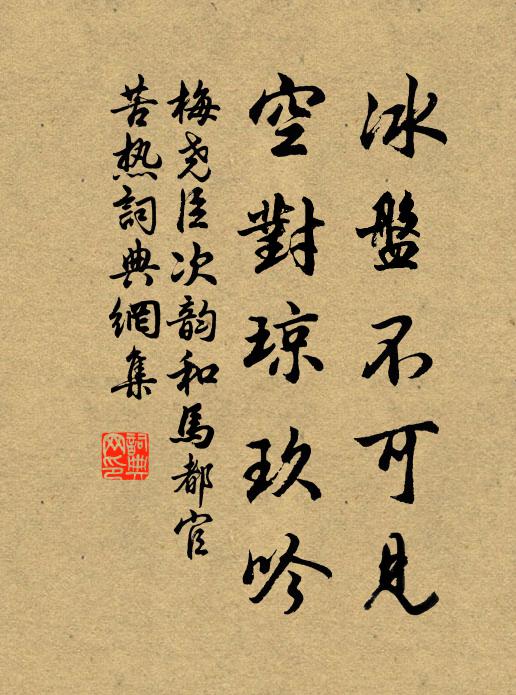 冰盤不可見
空對琼玖吟
梅尧臣次韵和馬都官
苦热詞典網集
詞典
网印